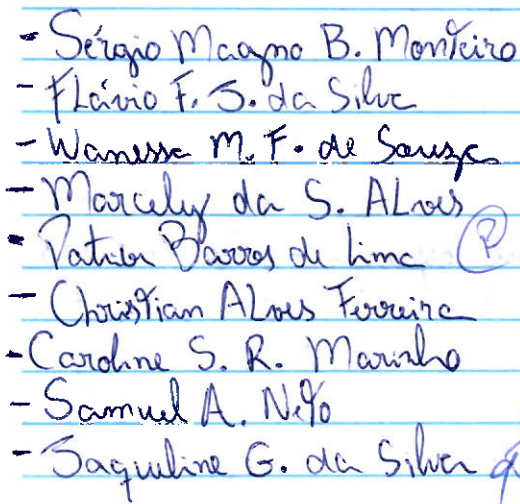 - Sérgio Magno B. Monteiro
- Flávio F. J. da Silva
- Wanessa M. F. de Souza
- Marcely da S. Alves
- Patricia Barros de Lima (P)
- Christian Alves Ferreira
- Caroline S. R. Marinho
- Samuel A. Neto
- Jaqueline G. da Silva